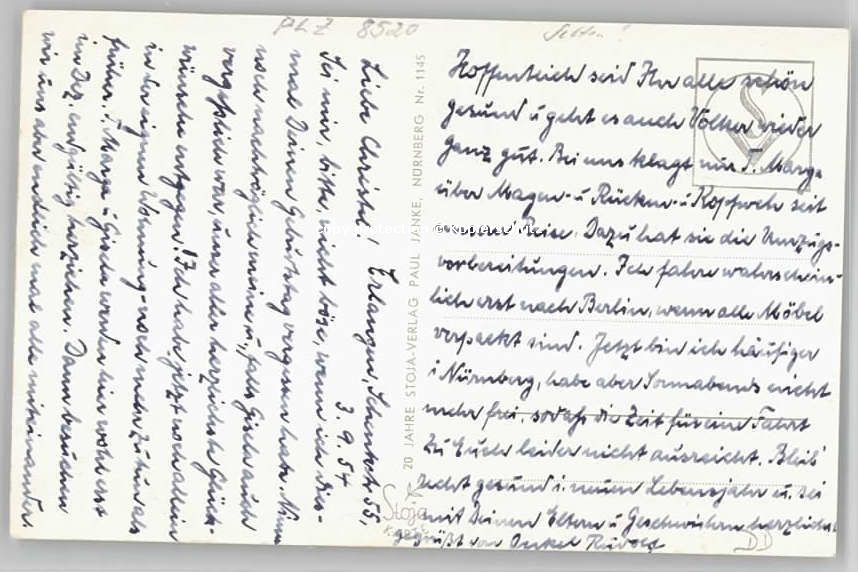 PLZ 8520
Erlangen, Schenkstr. 55,
3.9.54
Liebe Christel!
Sei mir, bitte, nicht böse, wenn ich dies-
mal Deinen Geburtstag vergessen habe. Nimm
noch nachträglich meine u., falls Gisela auch
vergesslich war, unser aller herzlichste Glück-
wünsche entgegen! Ich habe jetzt noch allein
in der eigenen Wohnung noch mehr zu tun als
früher. T. Marga u. Gisela werden hier wohl erst
im Dez. endgültig herziehen. Dann besuchen
wir uns aber endlich mal alle miteinander.
20 JAHRE STOJA-VERLAG PAUL JANKE, NÜRNBERG Nr. 1145
Stoja
copyright protection © Kopierschutz
Hoffentlich seid Ihr alle schön
gesund u. geht es auch Volker wieder
ganz gut. Bei uns klagt nur T. Marga
über Magen- u. Rücken- u. Kopfweh seit
unserer Reise. Dazu hat sie die Umzugs-
vorbereitungen. Ich fahre wahrschein-
lich erst nach Berlin, wenn alle Möbel
verpackt sind. Jetzt bin ich häufiger
i. Nürnberg, habe aber Sonnabends nicht
mehr frei, sodaß die Zeit für eine Fahrt
zu Euch leider nicht ausreicht. Bleib'
recht gesund i. neuen Lebensjahr u. sei
mit Deinen Eltern u. Geschwistern herzlichst
gegrüßt von Onkel Rudolf